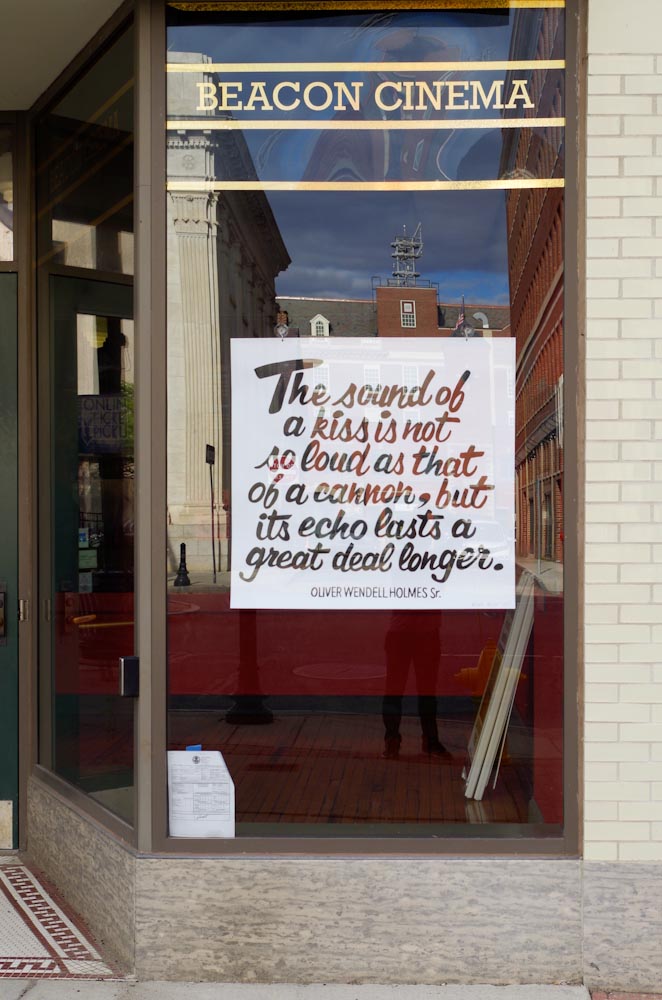 BEACON CINEMA
The sound of
a kiss is not
so loud as that
of a cannon, but
its echo lasts a
great deal longer.
OLIVER WENDELL HOLMES Sr.
ONLINE
TICKET
PICKUP